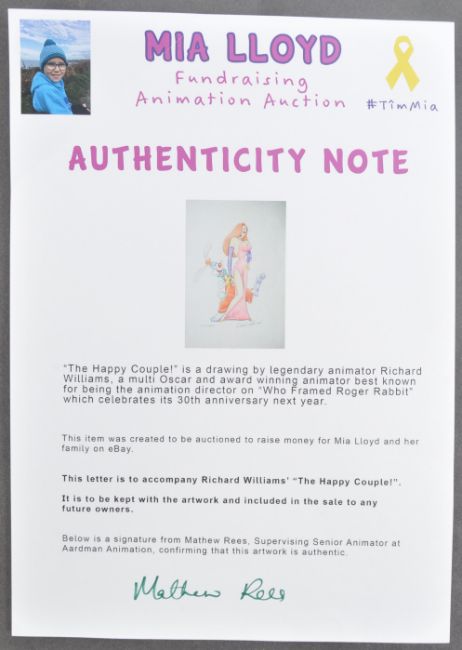 MIA LLOYD
Fundraising
Animation Auction
#TîmMia
AUTHENTICITY NOTE
“The Happy Couple!” is a drawing by legendary animator Richard
Williams, a multi Oscar and award winning animator best known
for being the animation director on “Who Framed Roger Rabbit”
which celebrates its 30th anniversary next year.
This item was created to be auctioned to raise money for Mia Lloyd and her
family on eBay.
This letter is to accompany Richard Williams’ “The Happy Couple!”.
It is to be kept with the artwork and included in the sale to any
future owners.
Below is a signature from Mathew Rees, Supervising Senior Animator at
Aardman Animation, confirming that this artwork is authentic.
Mathew Rees